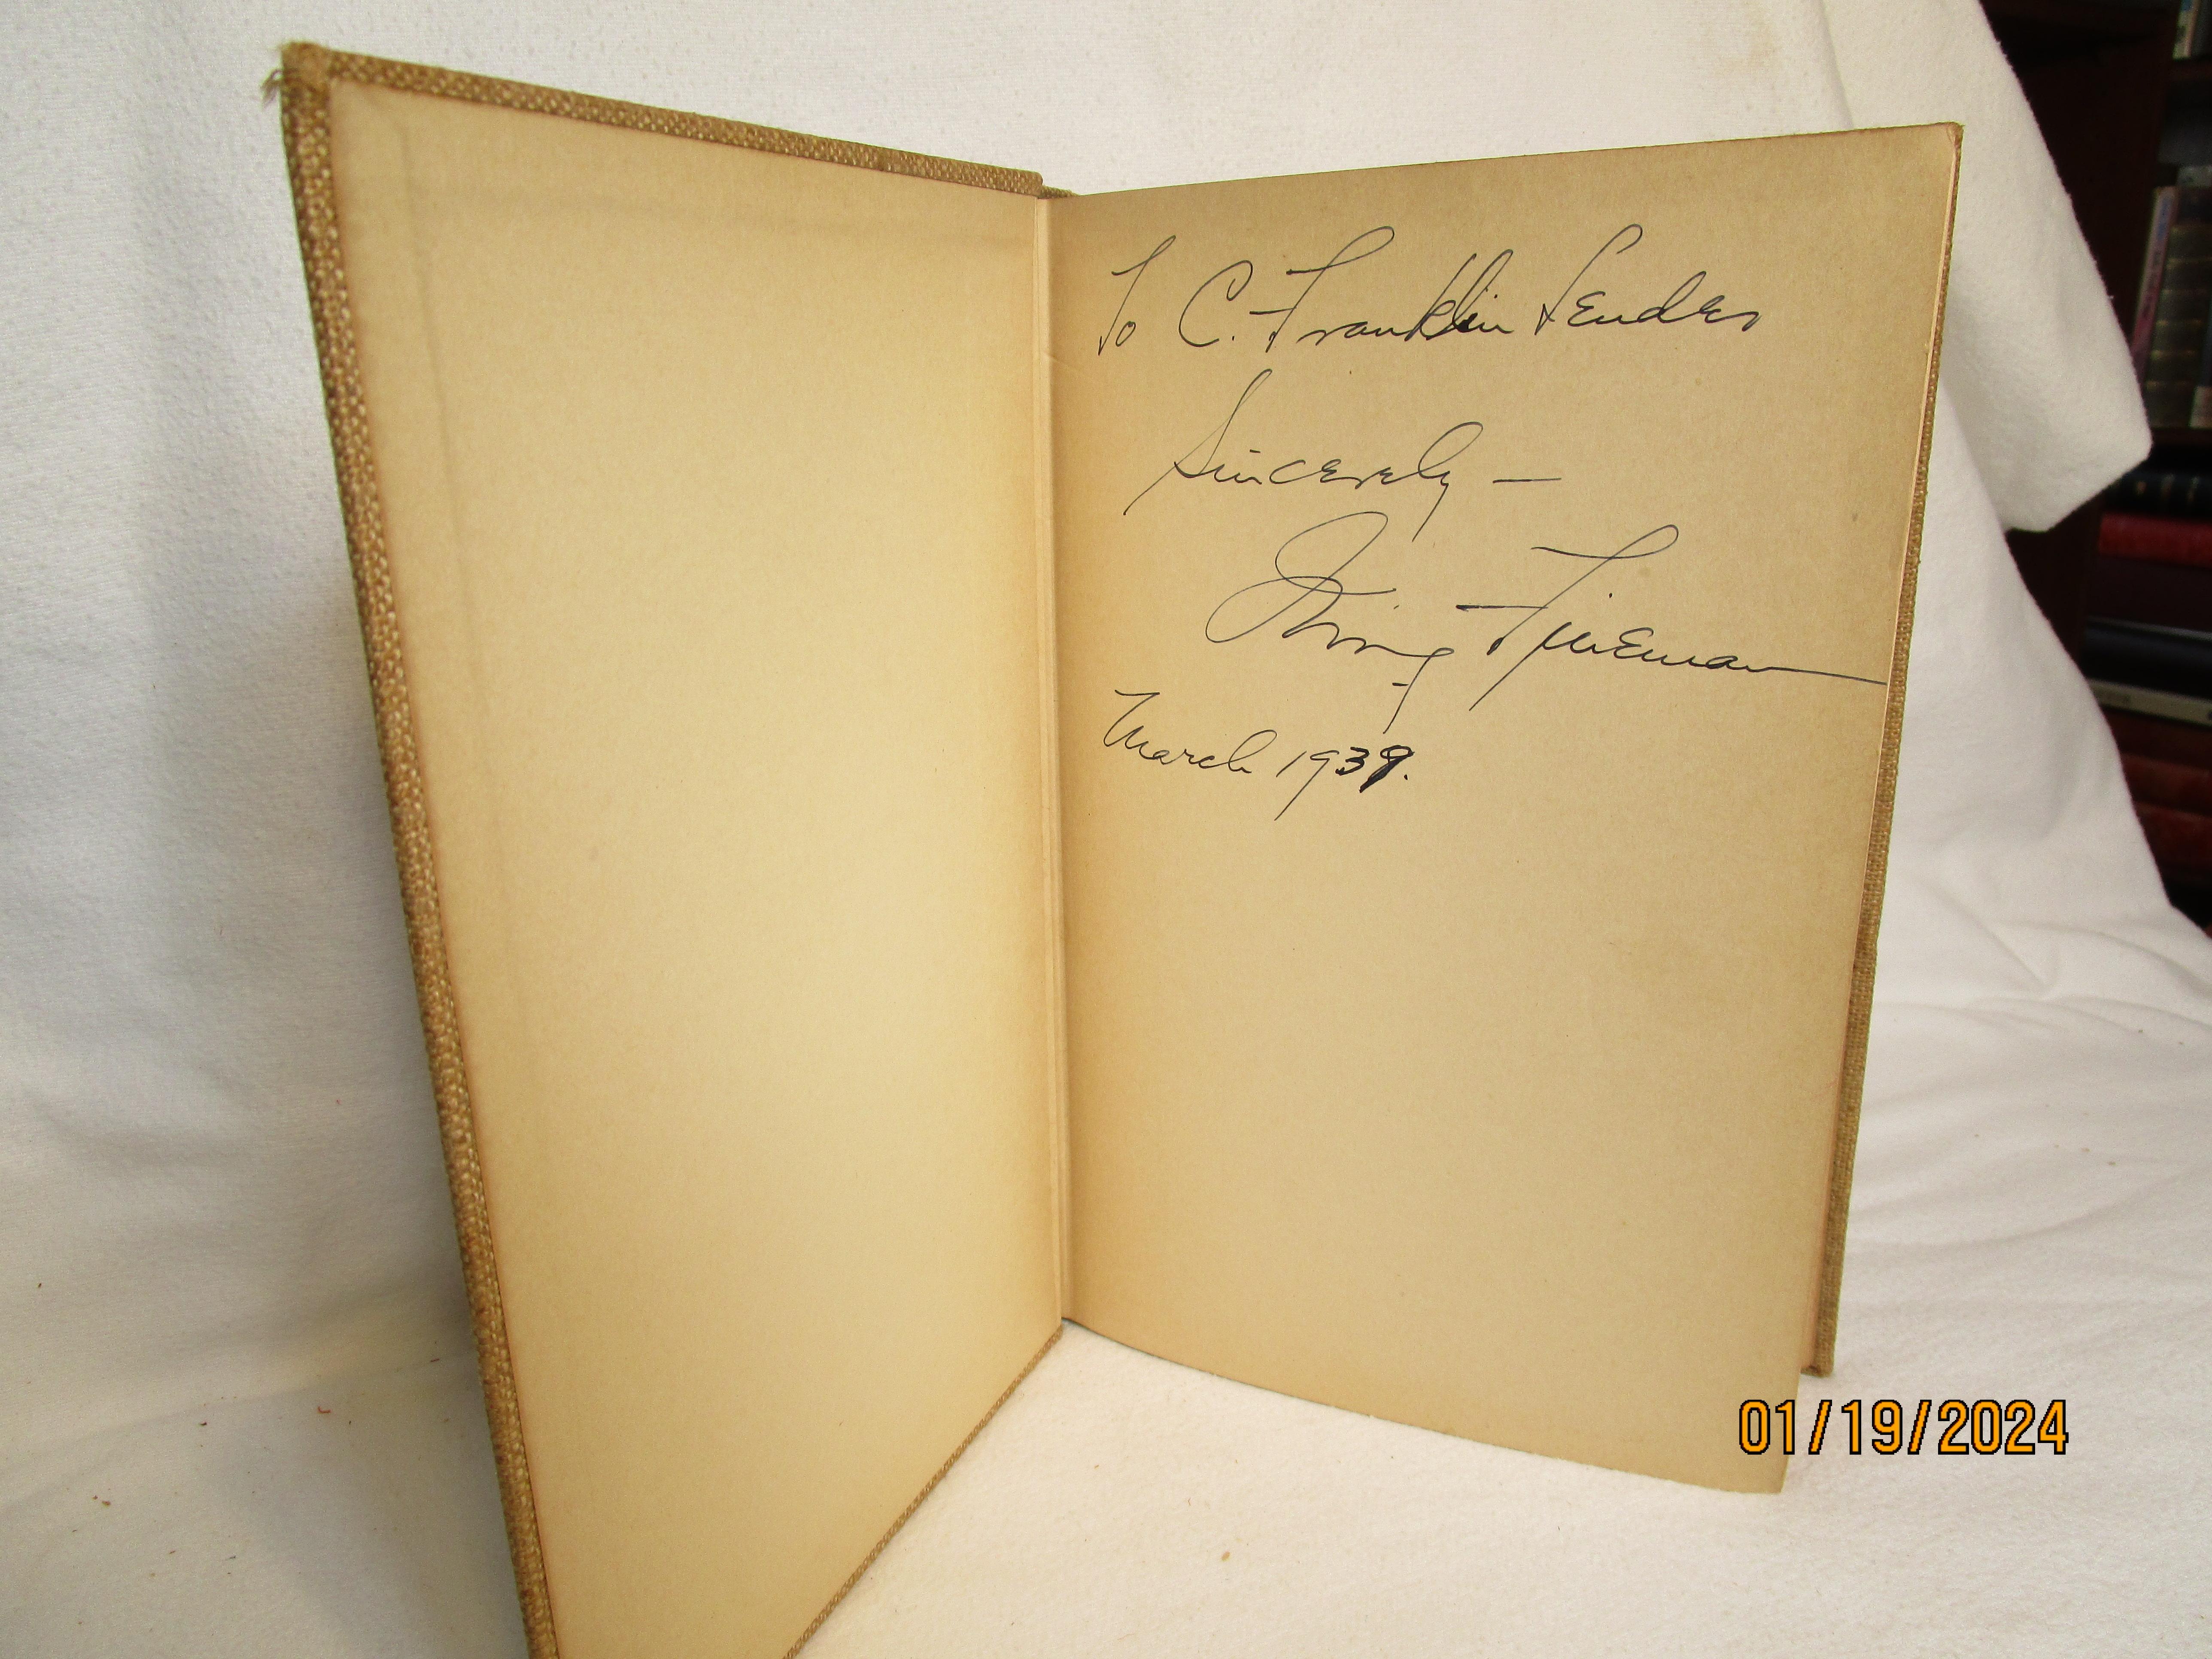 To C. Franklin Sender
Sincerely —
Irving Fineman
March 1939.
01/19/2024